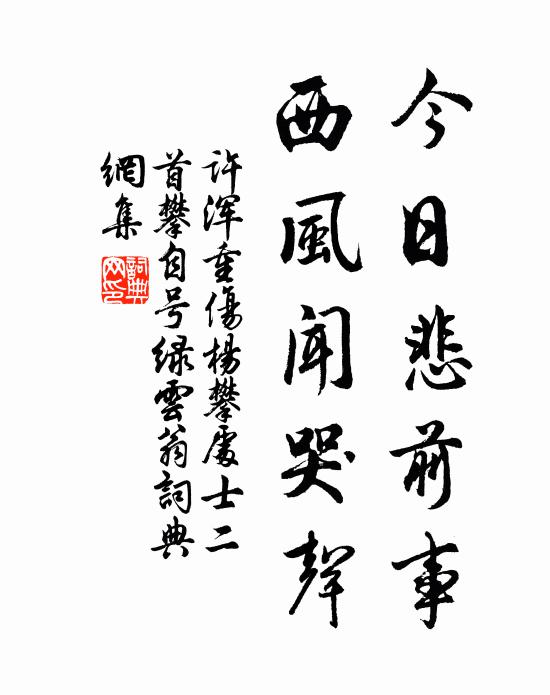 今日悲前事
西風聞哭聲
许渾重傷楊攀處士二
首攀自号绿雲翁詞典
網集
詞典網印